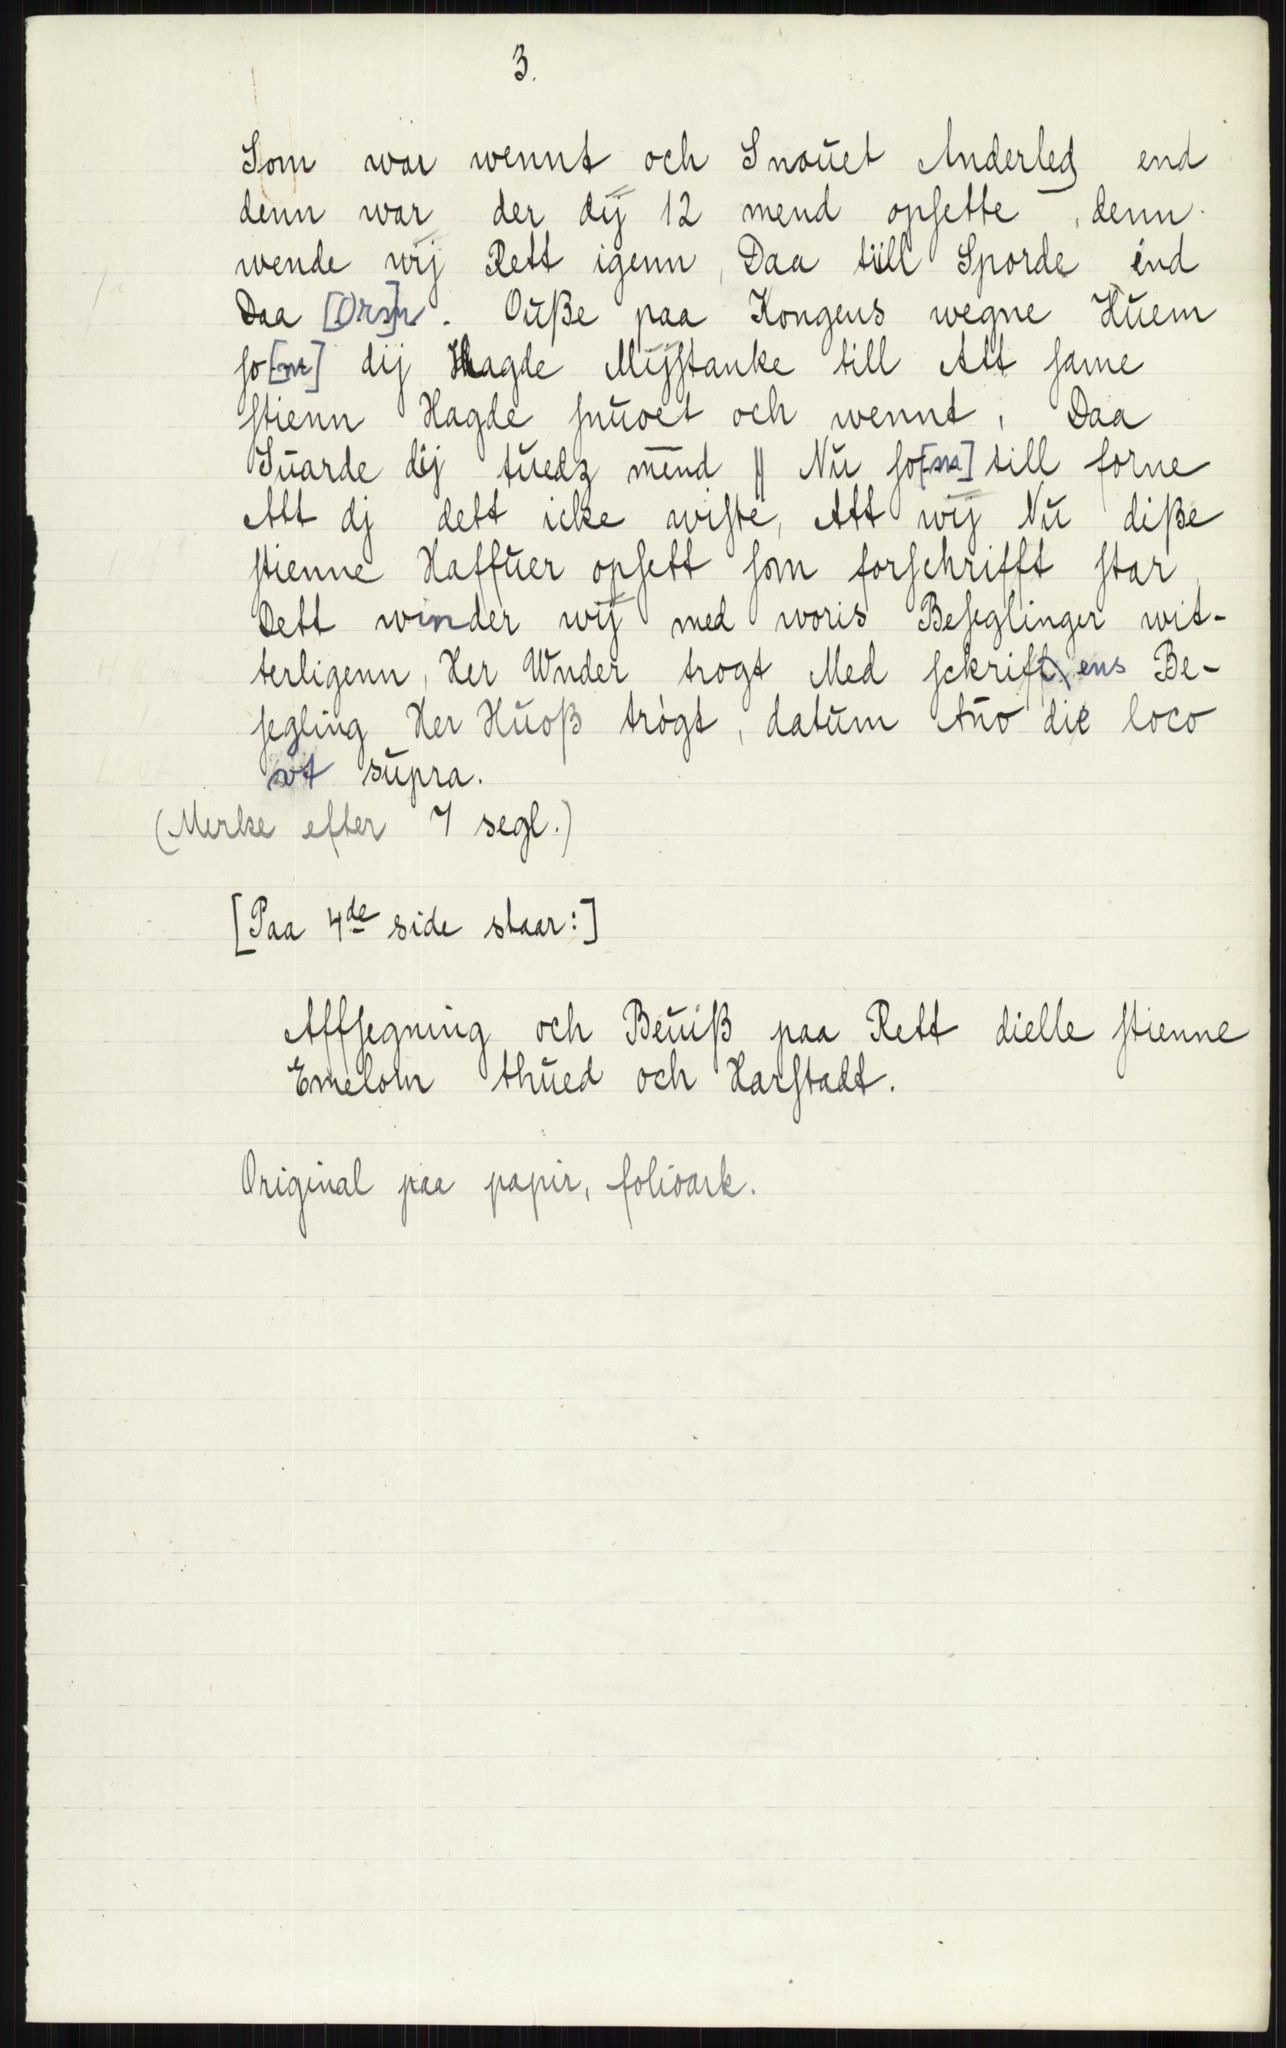 3.
Som war wennt och Snouet Anderledz end
denn war der dij 12 mend opsette, denn
wende wij Rett igenn, Daa till Sporde ind
Daa [Orm]. Ouße paa Kongens wegne Huem
so[m] dij Hagde Mijstanke till Att same
stienn Hagde snuoet och wennt, Daa
Suarde dij tuedz mend || Nu so[m] till forne
Att dj dett icke wiste, Att wij Nu diße
stienne Haffuer opsett som forschrifft star
Dett winder wij med woris Beseglinger wit-
terligenn, Her Wnder trogt Med sckriffuens Be-
segling Her Huoß trogt, datum Año die loco
vt supra.
(Merke efter 7 segl.)
[Paa 4de side staar:]
Affsegning och Beuiß paa Rett dielle stienne
Emelom thued och Harstadt.
Original paa papir, folioark.